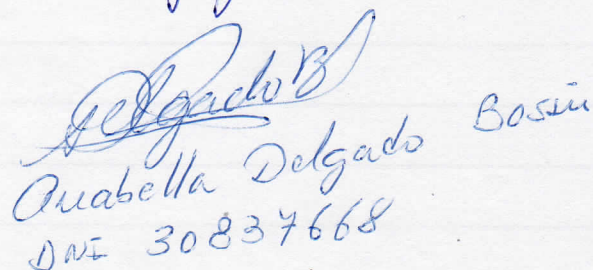 Delgado B
Anabella Delgado Bossiu
DNI 30837668